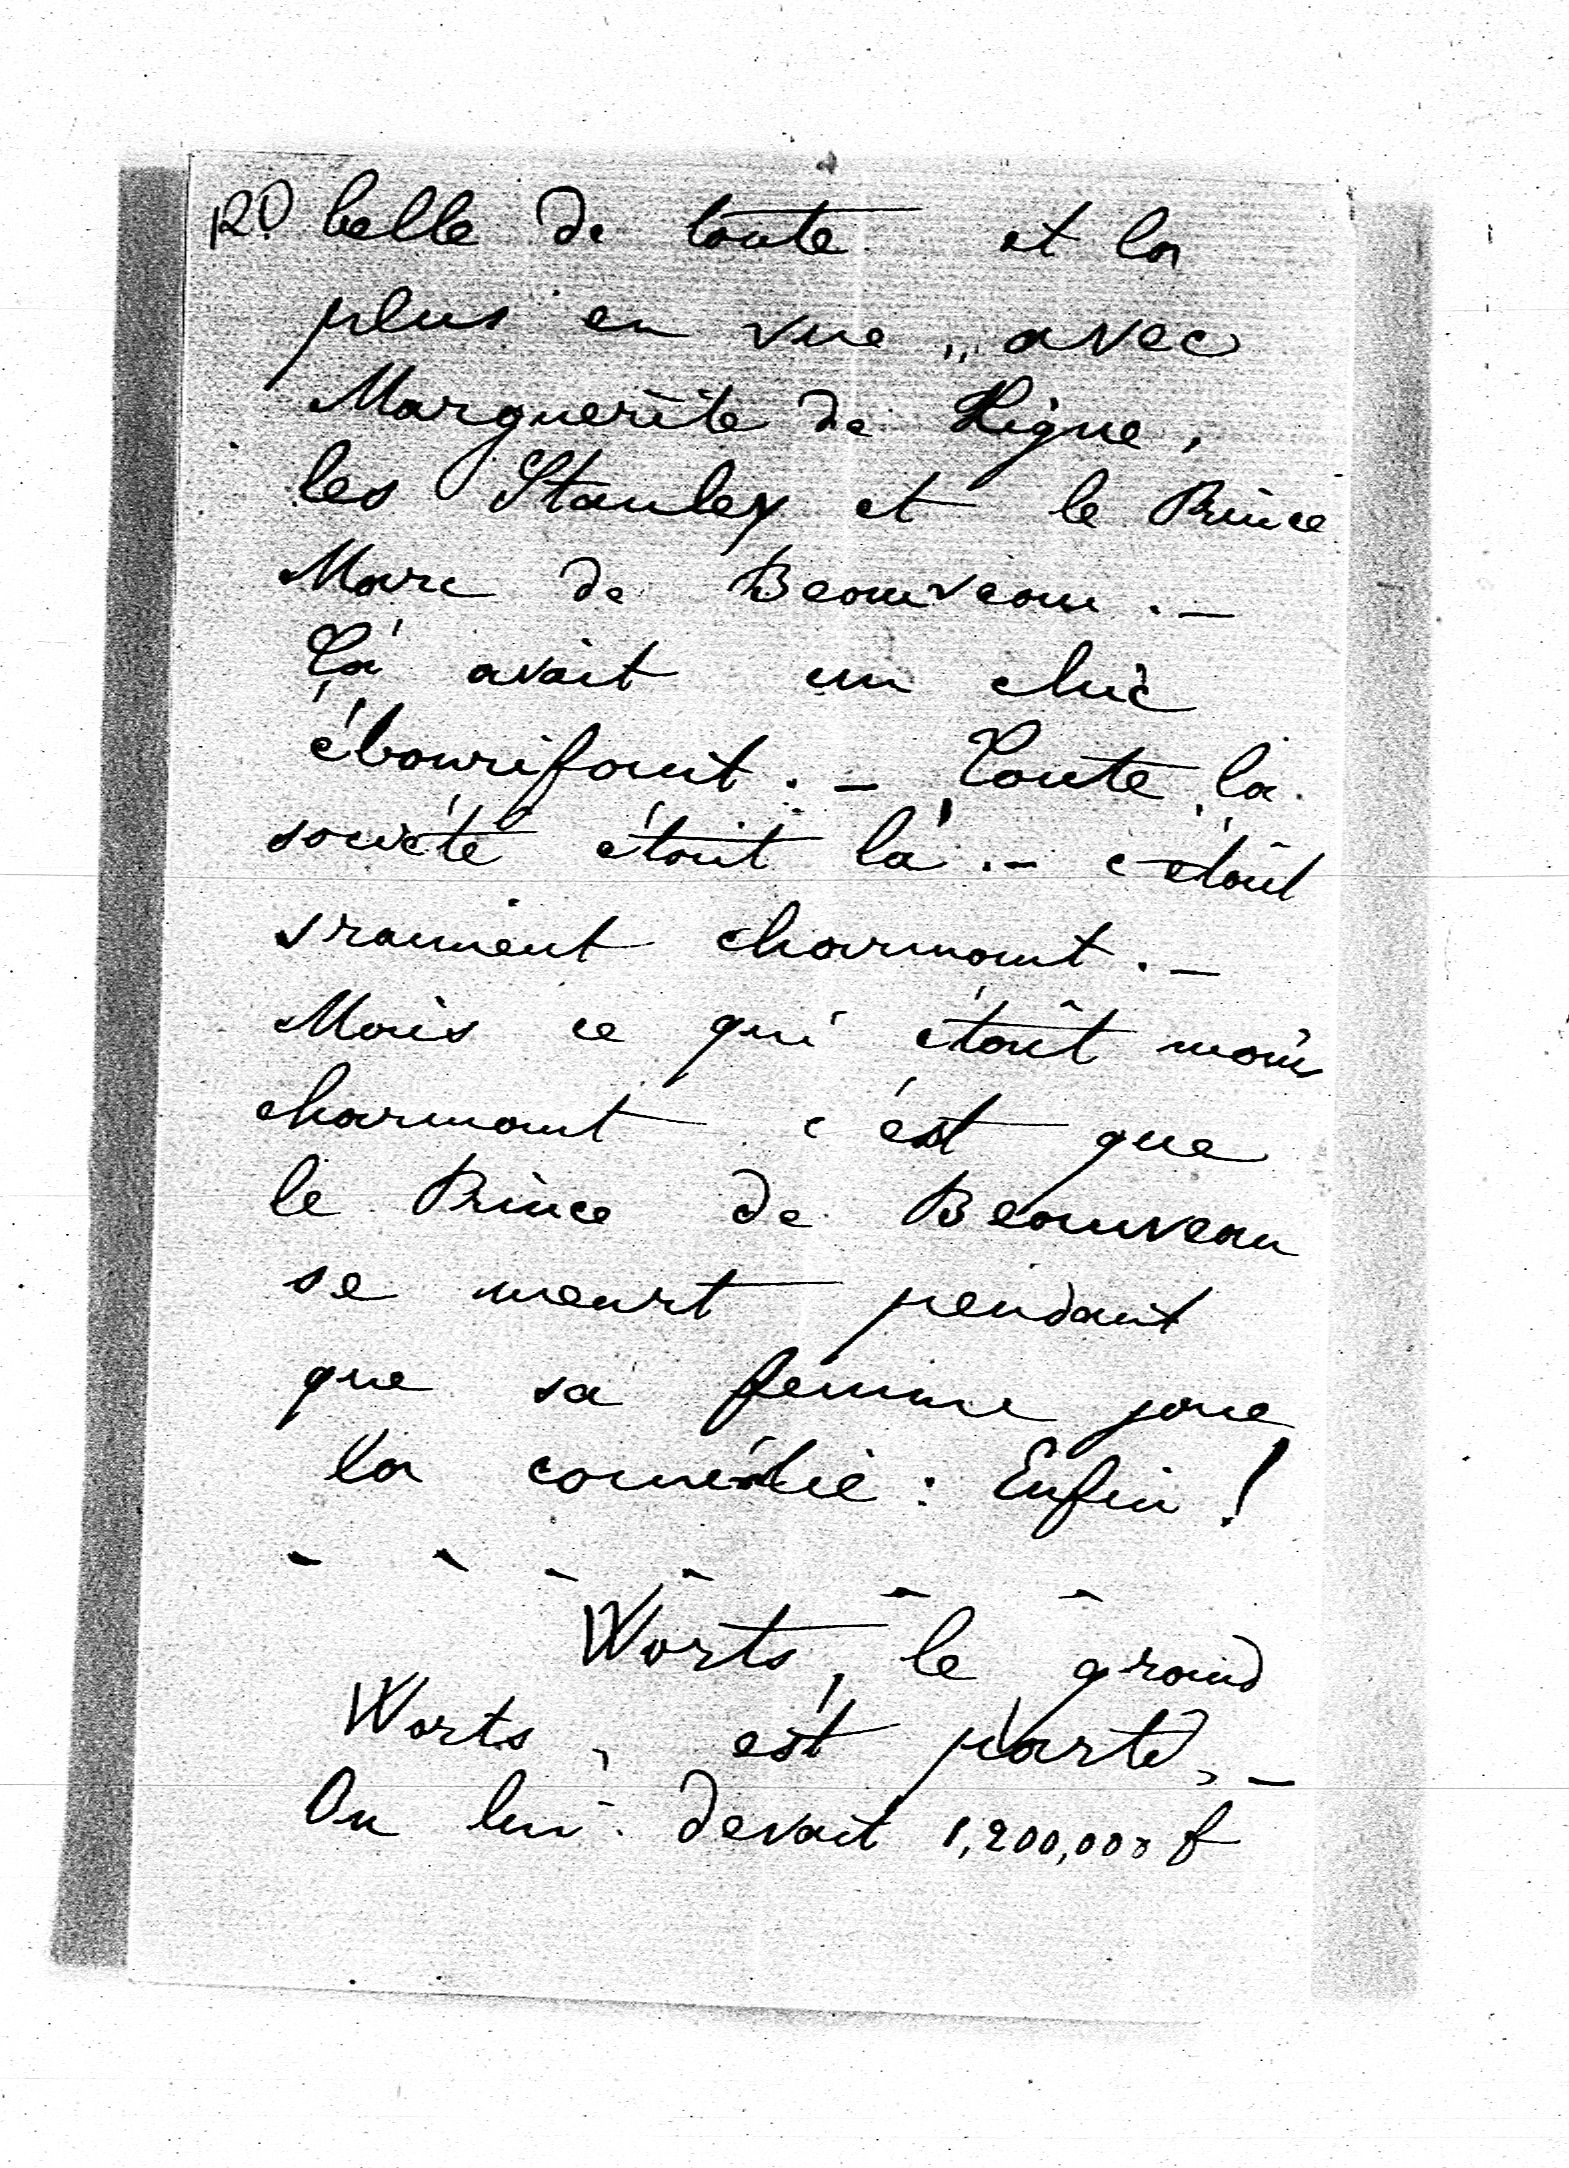 120 belle de toute et la
plus en vue, avec
Marguerite de Ligne,
les Stanley et le Prince
Marc de Beauveau. —
Ça avait un chic
ébourifant. — Toute la
société était là. — c'était
vraiment charmant. —
Mais ce qui était moins
charmant c'est que
le Prince de Beauveau
se meurt pendant
que sa femme joue
la comédie : Enfin !
- - - - - -
Worts, le grand
Worts, est parti, —
On lui devait 1,200,000 f